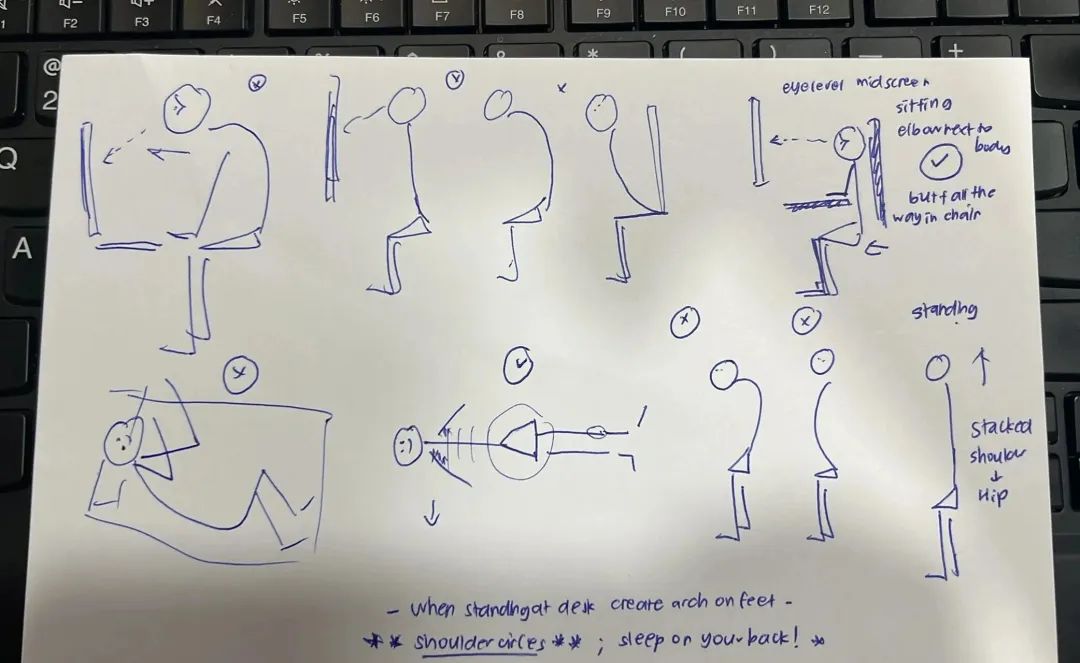 F2 F3 F4 F5 F6 F7 F8 F9 F10 F11 F12
@
2
* ( ) — +
Q
A
eyelevel midscreen
sitting
elbow next to
body
butt all the
way in chair
standing
stacked
shoulder
Hip
- when standing at desk create arch on feet -
** shoulder circles ** ; sleep on your back! *